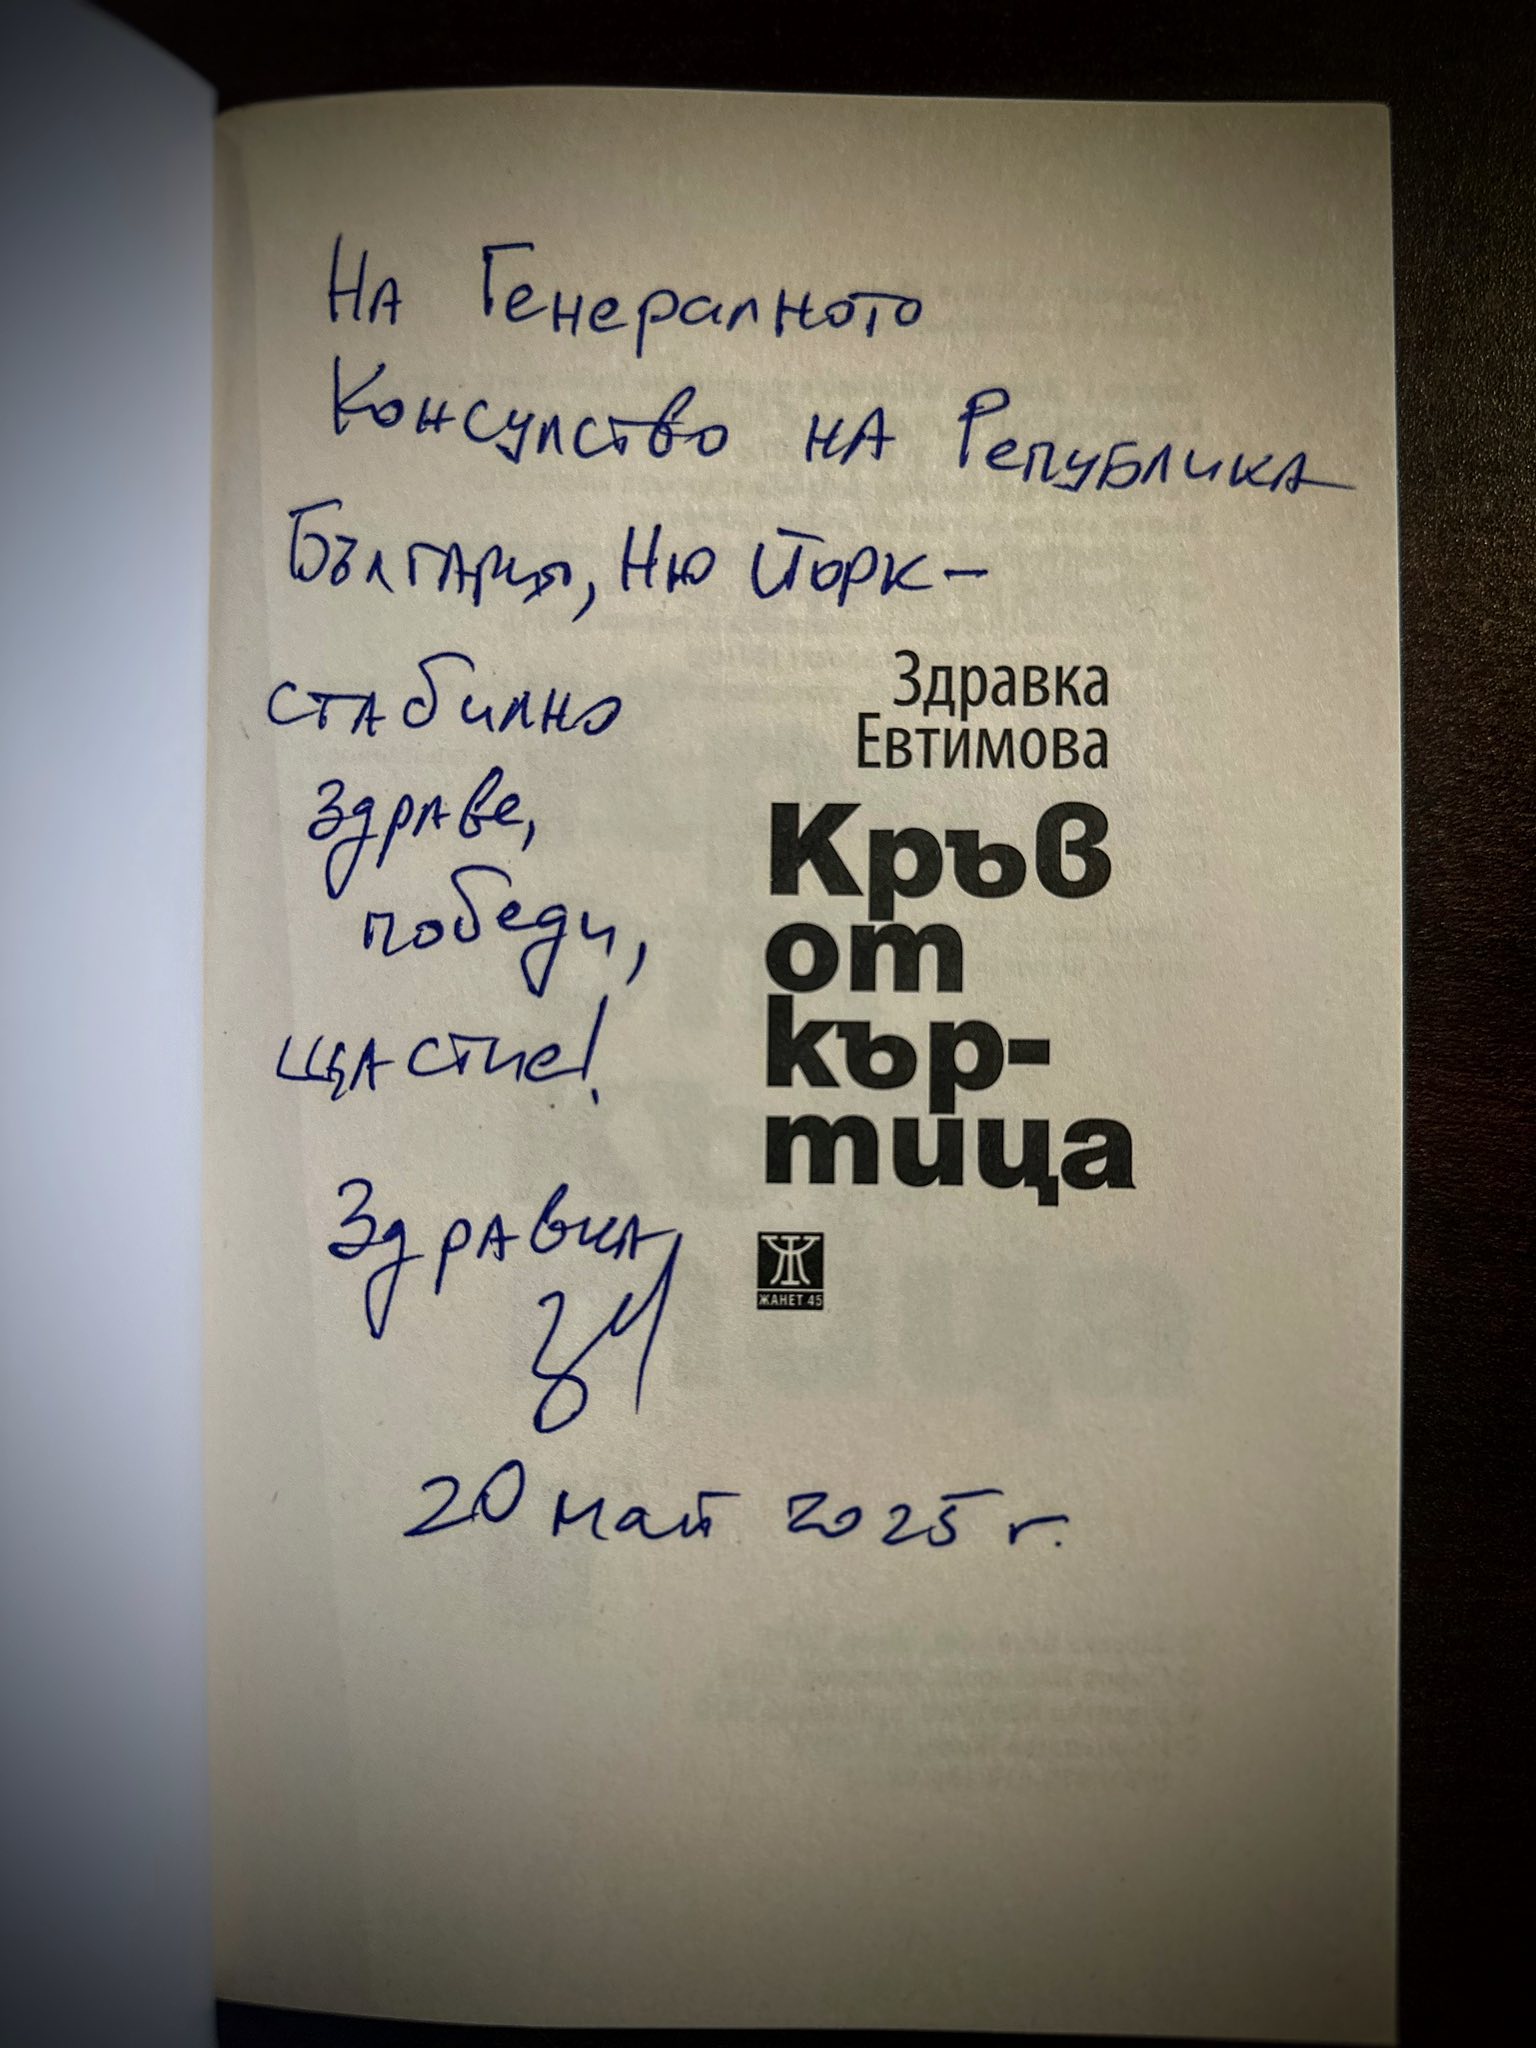 На Генералното
Консулство на Република
България, Ню Йорк –
стабилно
здраве,
победи,
щастие!
Здравка
20 май 2025 г.
Здравка
Евтимова
Кръв
от
кър-
тица
Ж
ЖАНЕТ 45